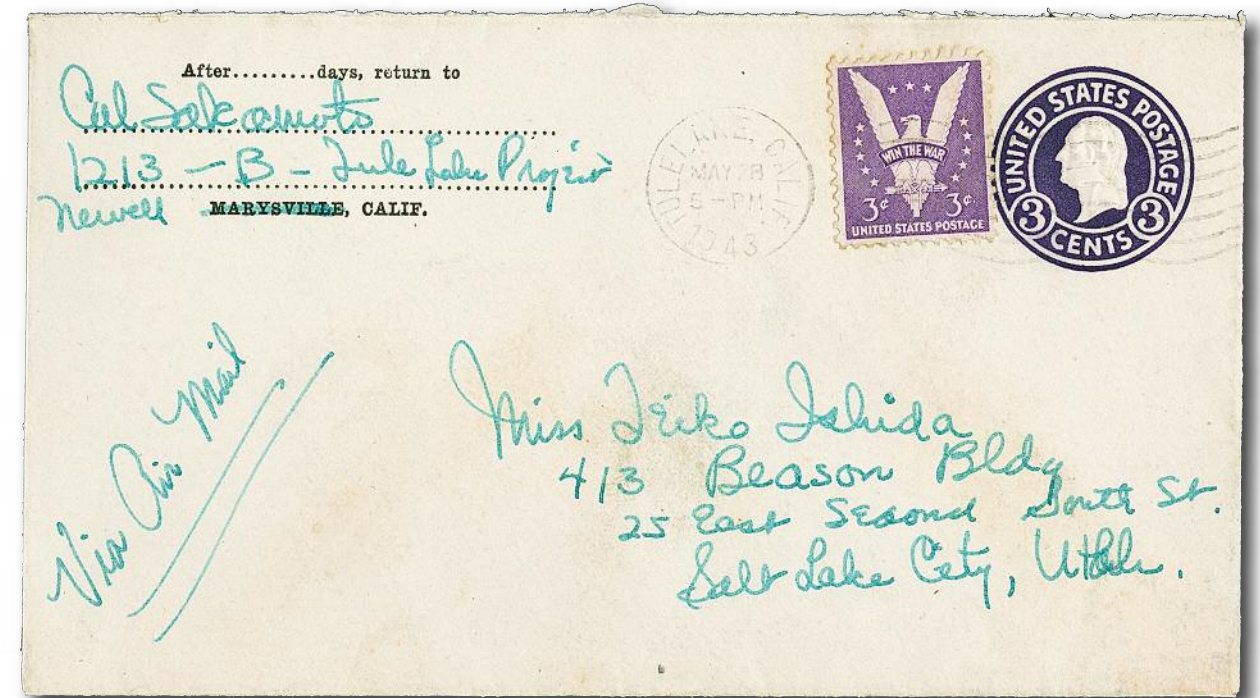 After.........days, return to
Cal Sakamoto
1213 - B - Tule Lake Project
Newell MARYSVILLE, CALIF.
TULELAKE, CALIF.
MAY 28
5-PM
1943
WIN THE WAR
3¢ 3¢
UNITED STATES POSTAGE
UNITED STATES POSTAGE
3 3
CENTS
Via Air Mail
Miss Teiko Ishida
413 Beason Bldg
25 East Second South St.
Salt Lake City, Utah.